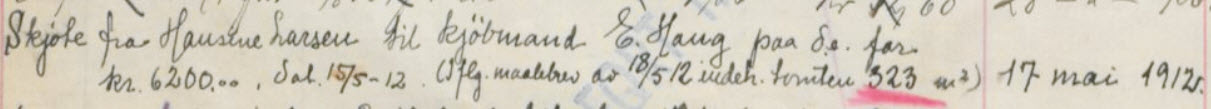 Skjöte fra Hansine Larsen til kjöbmand E. Haug paa d.e. for
kr. 6200.00, dat. 15/5-12. (Iflg. maalebrev av 18/5 12 indeh. tomten 323 m²) 17 mai 1912.